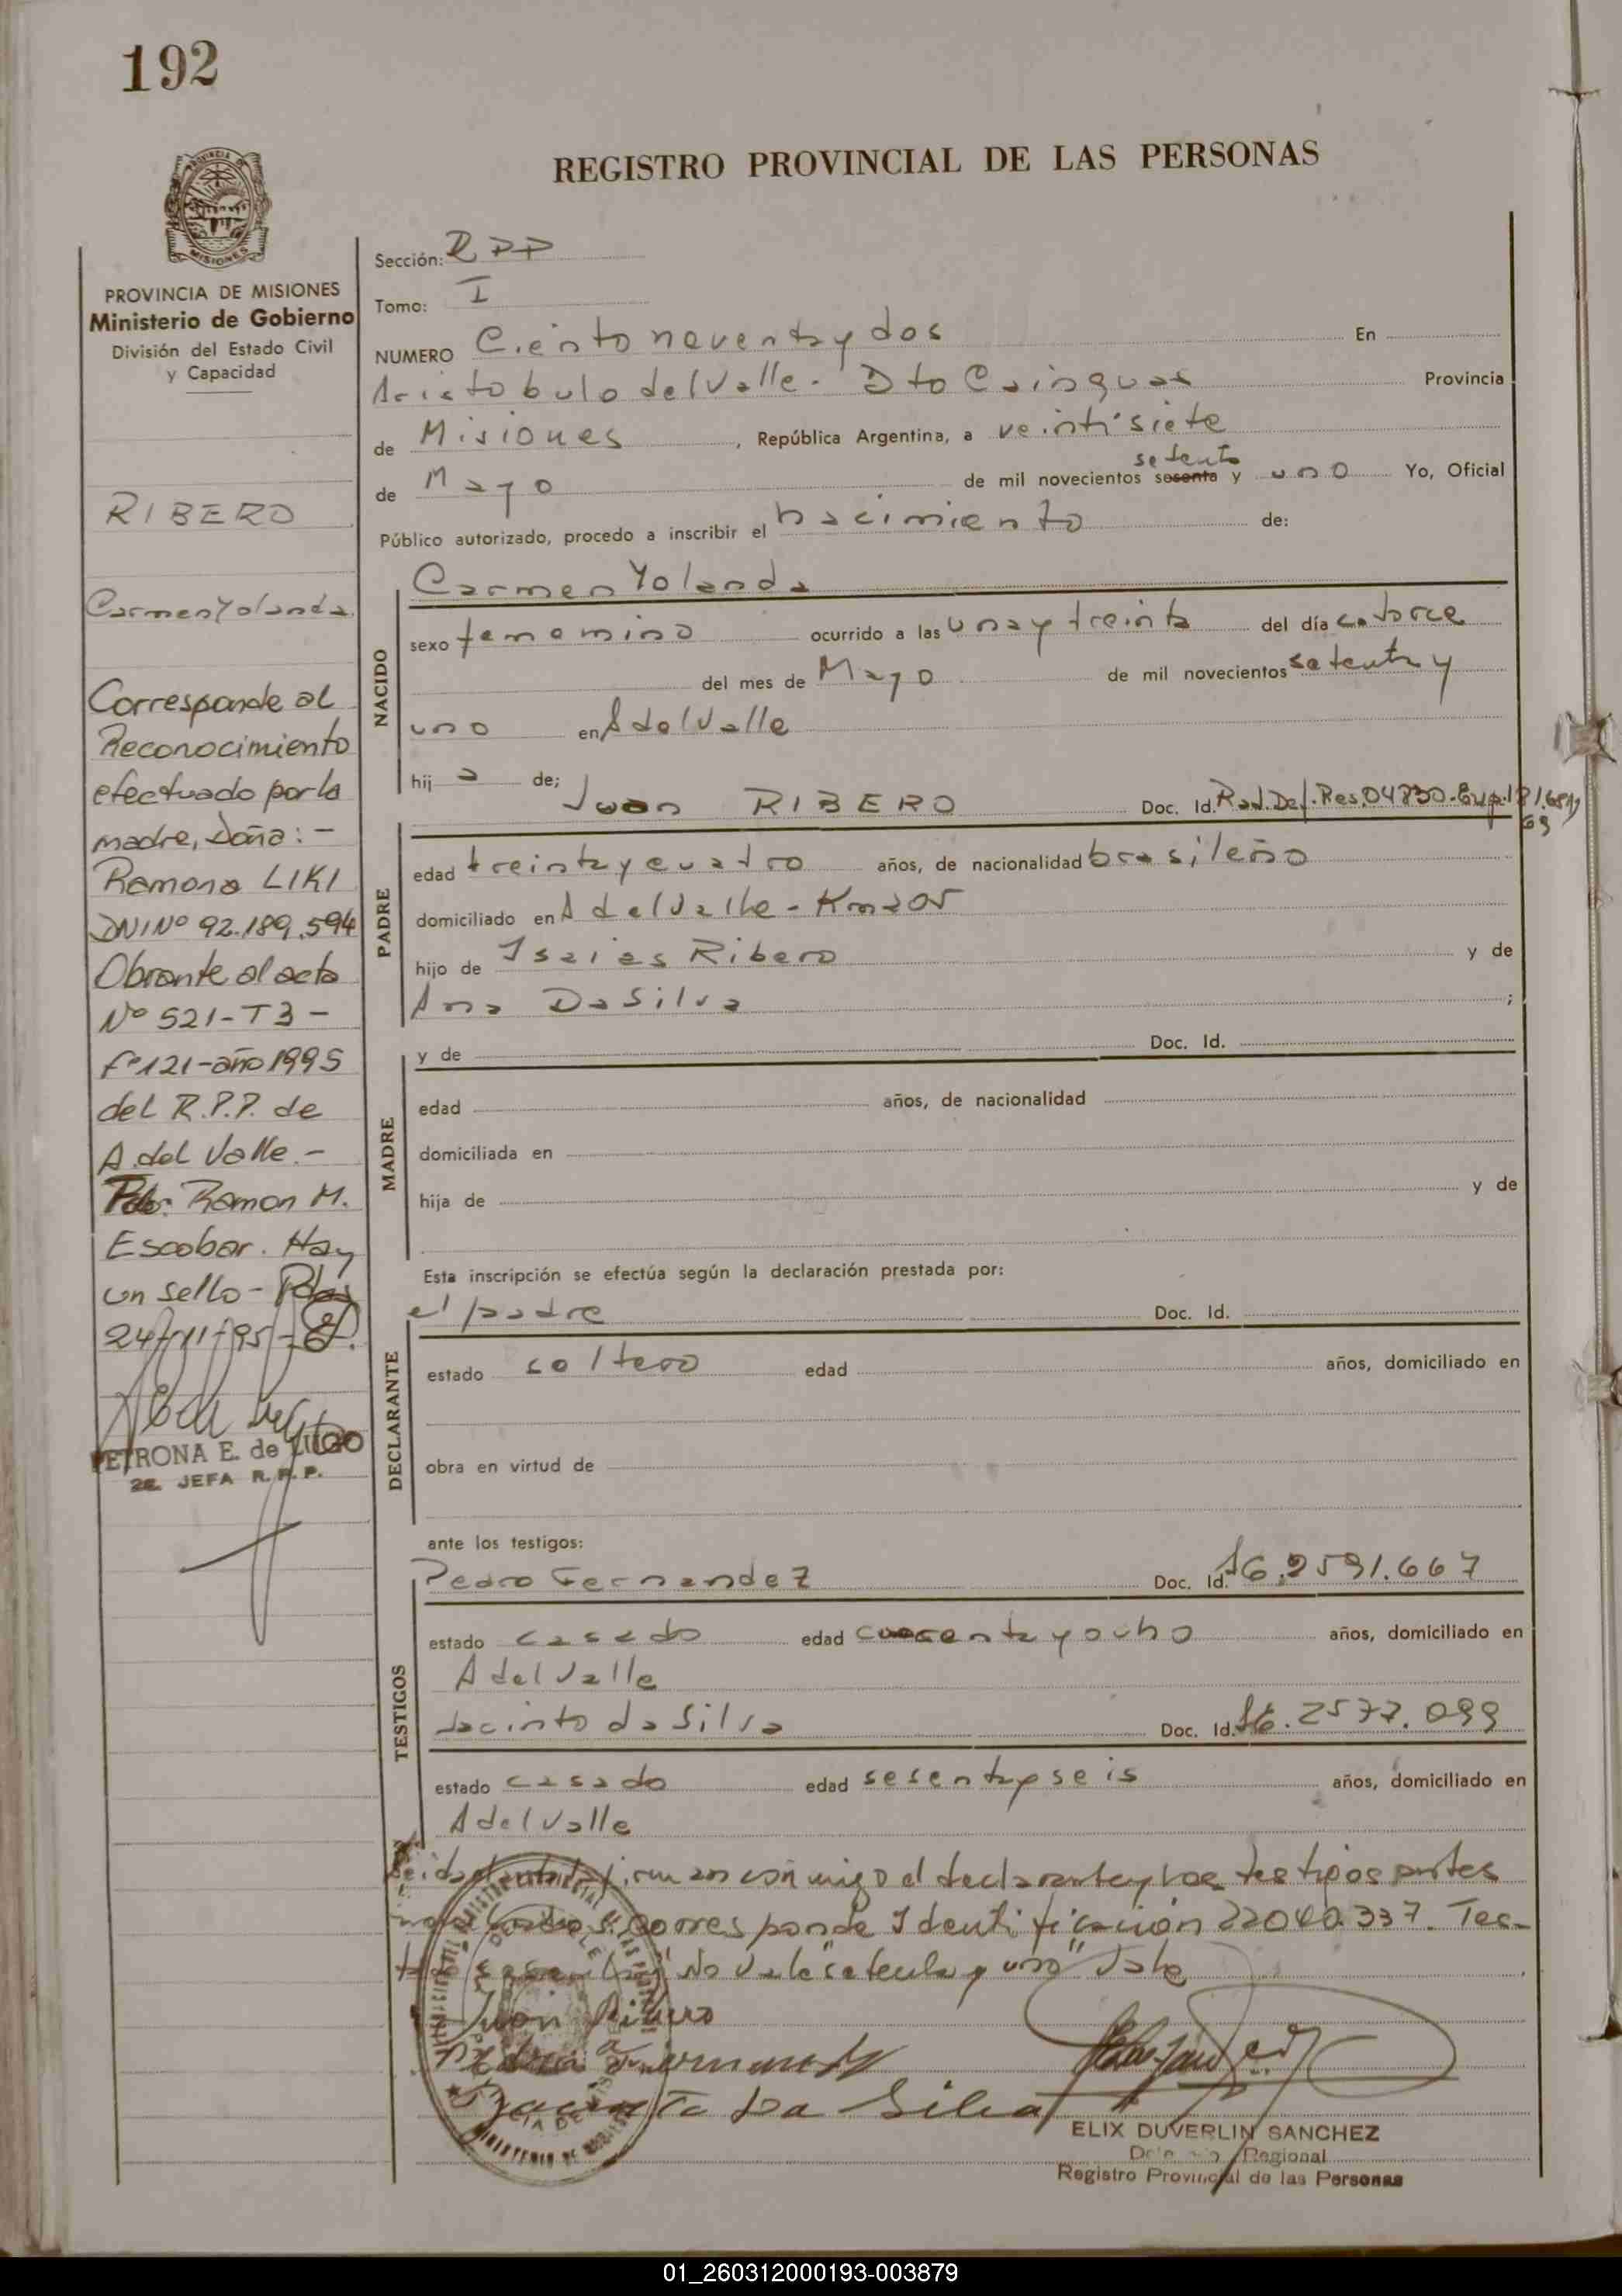 192
REGISTRO PROVINCIAL DE LAS PERSONAS
PROVINCIA DE
MISIONES
PROVINCIA DE MISIONES
Ministerio de Gobierno
División del Estado Civil
y Capacidad
RIBERO
Carmen Yolanda
Corresponde al
Reconocimiento
efectuado por la
madre, Doña: -
Ramona LIKI
DNI Nº 92.189.594
Obrante al acta
Nº 521 - T3 -
fº 121 - año 1995
del R.P.P. de
A. del Valle. -
Fdo: Ramon M.
Escobar. Hay
un sello - Pdas
24/11/95 -
PETRONA E. de LUGO
2a. JEFA R.P.P.
Sección: RPP
Tomo: I
NUMERO Ciento noventa y dos En
Aristobulo del Valle. Dto Cainguas Provincia
de Misiones, República Argentina, a veintisiete
setenta
de Mayo de mil novecientos sesenta y uno Yo, Oficial
Público autorizado, procedo a inscribir el nacimiento de:
Carmen Yolanda
NACIDO
sexo femenino ocurrido a las una y treinta del día catorce
del mes de Mayo de mil novecientos setenta y
uno en A del Valle
hij a de;
Juan RIBERO Doc. Id. Rad. Def. Res. 04830 - Exp.
69
PADRE
edad treinta y cuatro años, de nacionalidad brasileño
domiciliado en A del Valle - Km 205
hijo de Isaias Ribero y de
Ana Da Silva ;
MADRE
y de Doc. Id.
edad años, de nacionalidad
domiciliada en
hija de y de
Esta inscripción se efectúa según la declaración prestada por:
el padre Doc. Id.
DECLARANTE
estado soltero edad años, domiciliado en
obra en virtud de
ante los testigos:
Pedro Fernandez Doc. Id. 2591.667
TESTIGOS
estado casado edad cuarenta y ocho años, domiciliado en
A del Valle
Jacinto da Silva Doc. Id. 2577.099
estado casado edad sesenta y seis años, domiciliado en
A del Valle
Leida el acta firman conmigo el declarante y los testigos antes
corresponde Identificación 22040.337. Tes-
No Vale "setenta y uno" Vale
Juan Ribero
Jacinto Da Silva
ELIX DUVERLIN SANCHEZ
Regional
Registro Provincial de las Personas
01_260312000193-003879